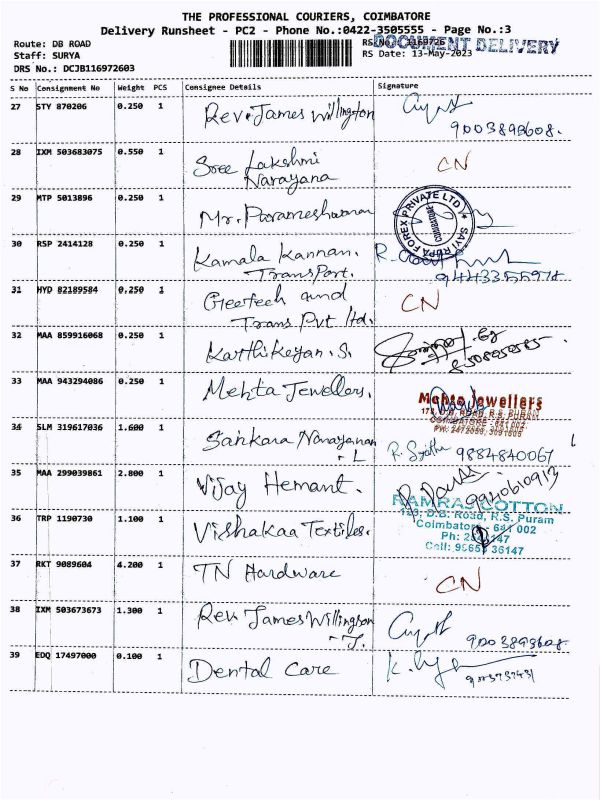 THE PROFESSIONAL COURIERS, COIMBATORE
Delivery Runsheet - PC2 - Phone No.:0422-3505555 - Page No.:3
Route: DB ROAD
RS No.: 1169726
DOCUMENT DELIVERY
Staff: SURYA
RS Date: 13-May-2023
DRS No.: DCJB116972603
S No Consignment No Weight PCS Consignee Details Signature
27 STY 870206 0.250 1 Rev. James Willington
9003893608.
28 IXM 503683075 0.550 1 Sree Lakshmi
Narayana
CN
29 MTP 5013896 0.250 1 Mr. Parameshwaran
SAYI RUPA FOREX PRIVATE LTD
COIMBATORE
30 RSP 2414128 0.250 1 Kamala Kannan.
Transport.
9443355978
31 HYD 82189584 0.250 1 Geeteech and
Trans Pvt ltd.
CN
32 MAA 859916068 0.250 1 Karthikeyan. S.
33 MAA 943294086 0.250 1 Mehta Jewellers.
Mehta Jewellers
172, D.B. ROAD, R.S. PURAM,
COIMBATORE - 641 002
34 SLM 319617036 1.600 1 Sankara Narayanan
- L
9884840067
35 MAA 299039861 2.800 1 Vijay Hemant.
9940610913
36 TRP 1190730 1.100 1 Vishakaa Textiles.
RAMRAJ COTTON
D.B. Road, R.S. Puram
Coimbatore - 641 002
Ph:
Cell:
36147
37 RKT 9089604 4.200 1 TN Hardware
CN
38 IXM 503673673 1.300 1 Rev. James Willingson
- J.
9003893608
39 EDQ 17497000 0.100 1 Dental Care